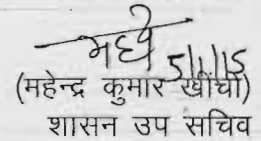 5/1/15
(महेन्द्र कुमार खींची)
शासन उप सचिव